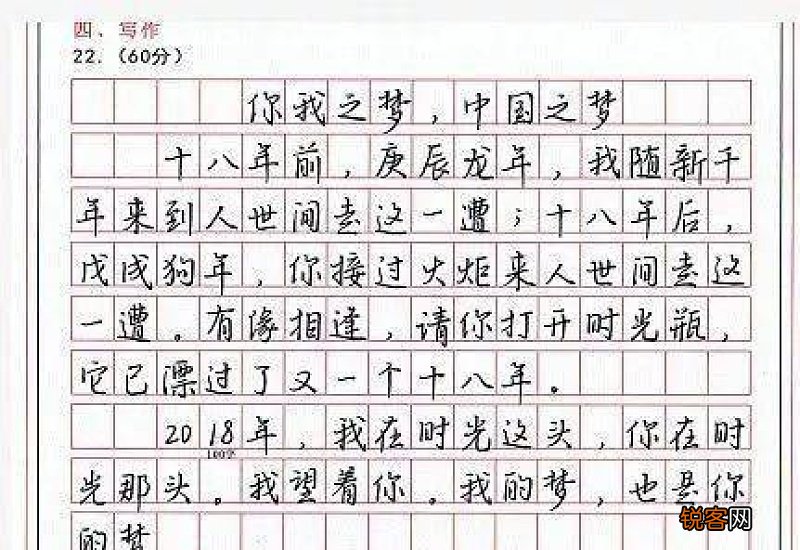 四、写作
22.（60分）
你我之梦，中国之梦
十八年前，庚辰龙年，我随新千
年来到人世间走这一遭；十八年后，
戊戌狗年，你接过火炬来人世间走这
一遭。有缘相逢，请你打开时光瓶，
它已漂过了又一个十八年。
2018年，我在时光这头，你在时
100字
光那头。我望着你。我的梦，也是你
的梦
锐客网